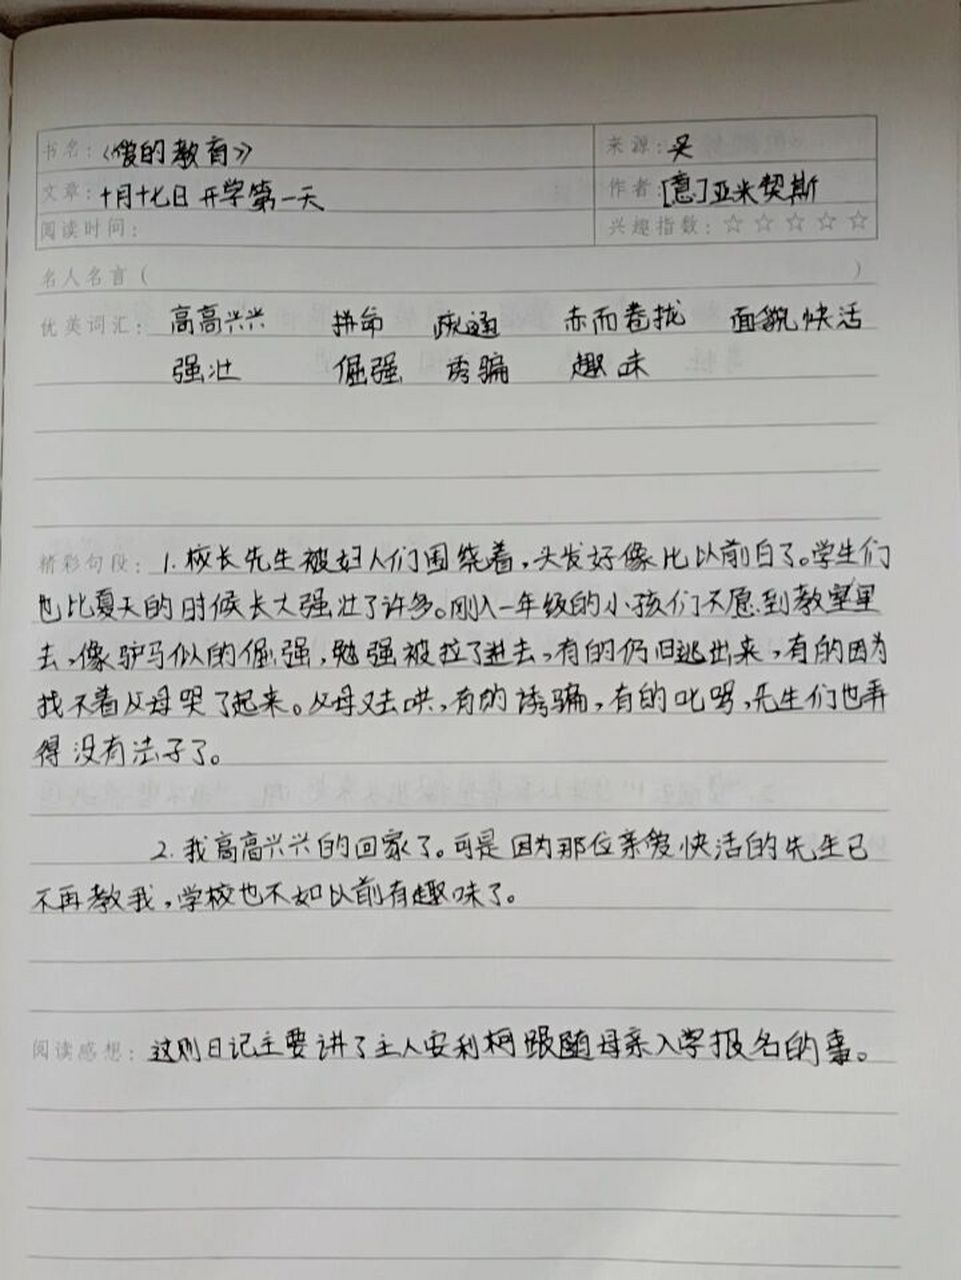 书名：《爱的教育》 来源：买
文章：十月十七日 开学第一天 作者：[意]亚米契斯
阅读时间： 兴趣指数：☆☆☆☆☆
名人名言（ ）
优美词汇：高高兴兴 拼命 疏通 赤而卷拢 面貌快活
强壮 倔强 诱骗 趣味
精彩句段：1.校长先生被妇人们围绕着，头发好像比以前白了。学生们
也比夏天的时候长大强壮了许多。刚入一年级的小孩们不愿到教室里
去，像驴马似的倔强，勉强被拉了进去，有的仍旧逃出来，有的因为
找不着父母哭了起来。父母又去哄，有的诱骗，有的叱骂，先生们也弄
得没有法子了。
2.我高高兴兴的回家了。可是因为那位亲爱快活的先生已
不再教我，学校也不如以前有趣味了。
阅读感想：这则日记主要讲了主人安利柯跟随母亲入学报名的事。